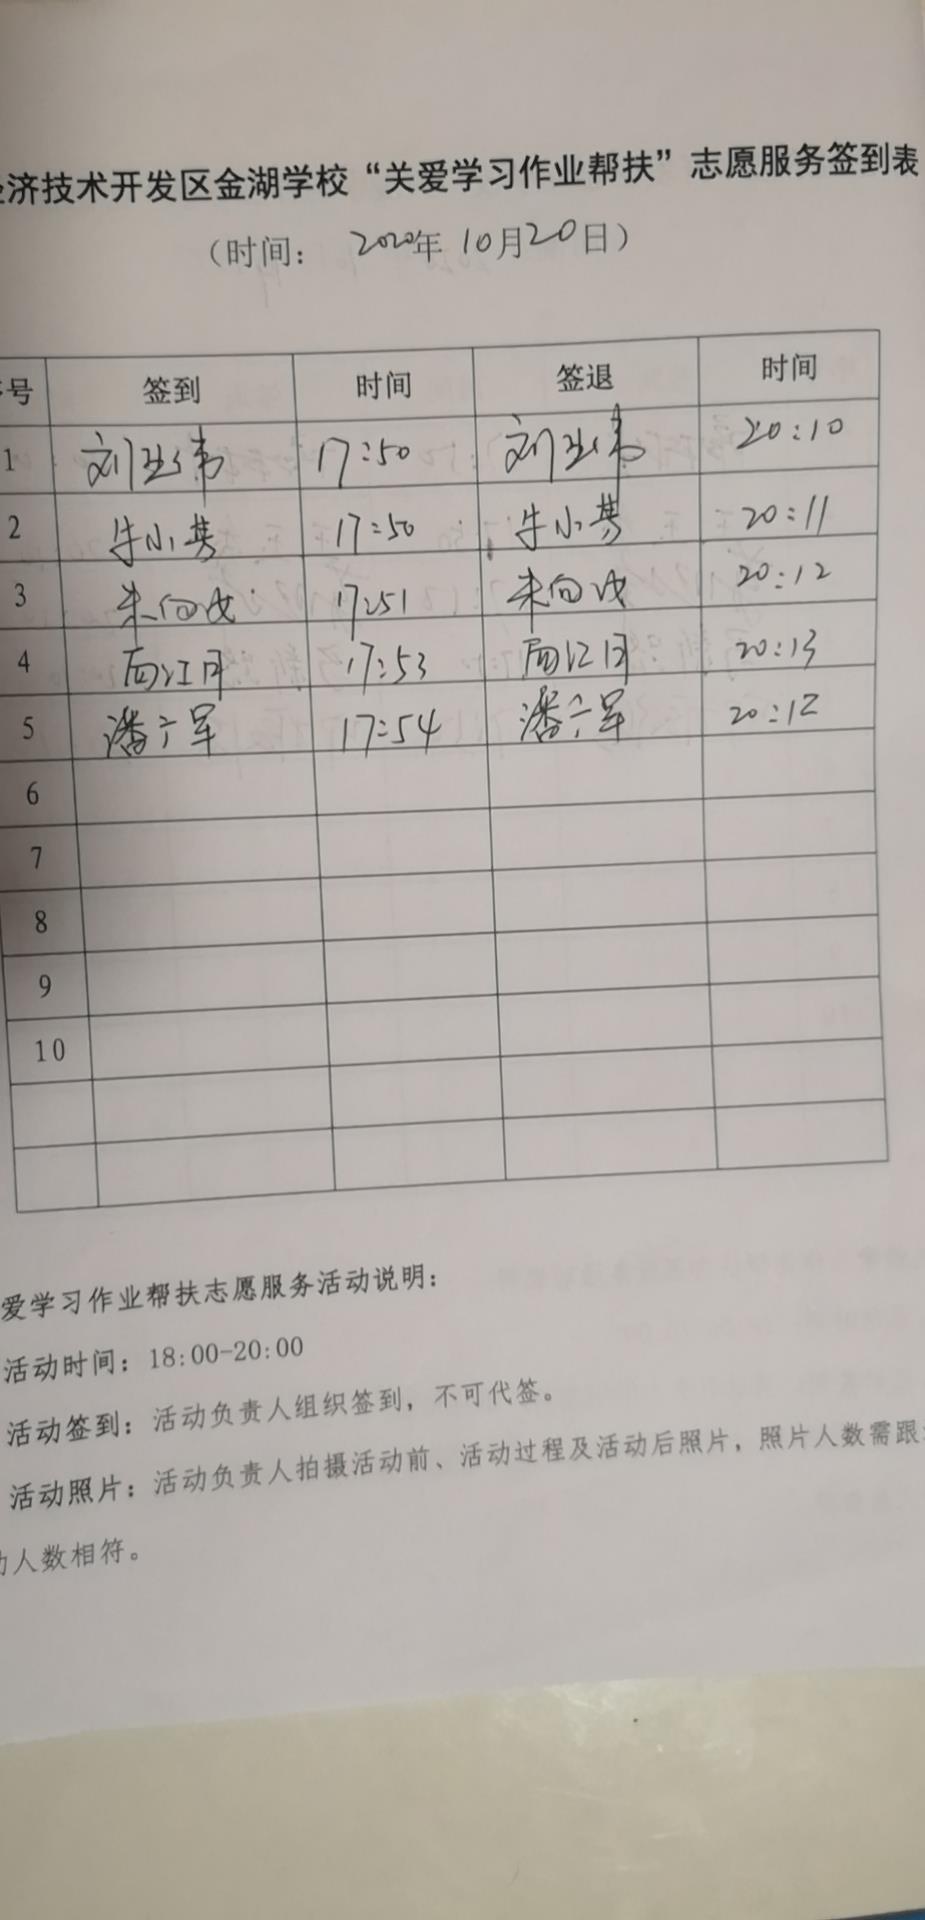 济技术开发区金湖学校“关爱学习作业帮扶”志愿服务签到表
（时间： 2020年 10月20日）
号 签到 时间 签退 时间
1 刘 17:50 刘 20:10
2 牛小 17:50 牛小 20:11
3 朱向 17:51 朱向 20:12
4 江月 17:53 江月 20:13
5 潘六军 17:54 潘六军 20:12
6
7
8
9
10
爱学习作业帮扶志愿服务活动说明：
活动时间：18:00-20:00
活动签到：活动负责人组织签到，不可代签。
活动照片：活动负责人拍摄活动前、活动过程及活动后照片，照片人数需跟
人数相符。